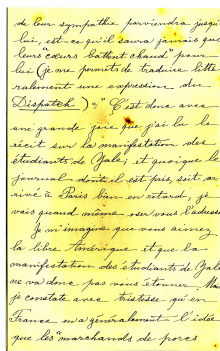 de leur sympathie parviendra jusqu'à
lui, est-ce qu'il saura jamais que
leurs "cœurs battent chaud" pour
lui (je me permets de traduire litté-
ralement une expression du
Dispatch)?" C'est donc avec
une grande joie que j'ai lu le
récit sur la manifestation des
étudiants de Yale, et quoique le
journal dont il est pris, soit ar-
rivé à Paris bien en retard, je
vais quand même oser vous l'adresser.
Je m'imagine que vous aimez
la libre Amérique et que la
manifestation des étudiants de Yale
ne va donc pas vous étonner. Mais
je constate avec tristesse qu'en
France on a généralement l'idée
que les "marchands de porcs